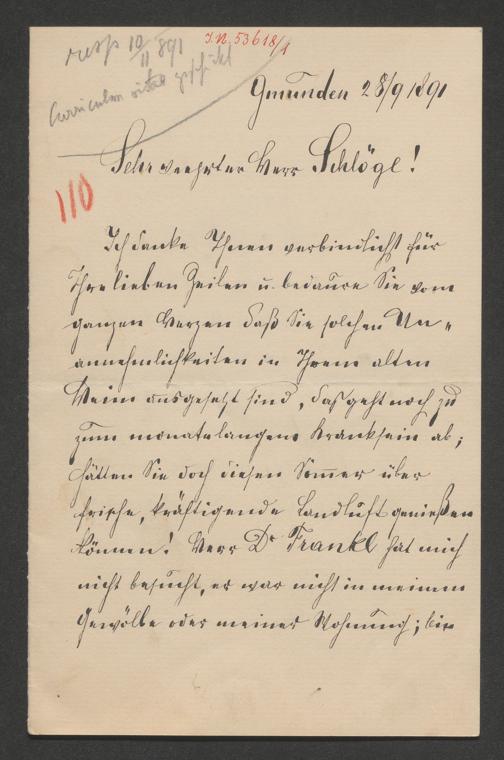 resp 10/11 891
J.N. 53618/1
Curriculum vitae geschickt
Gmunden 28/9 1891
110
Sehr verehrter Herr Schlögl!
Ich danke Ihnen verbindlichst für
Ihre lieben Zeilen u. bedaure Sie vom
ganzen Herzen daß Sie solchen Un-
annehmlichkeiten in Ihrem alten
Heim ausgesetzt sind, das geht noch zu
zum monatelangem Kranksein ab;
hätten Sie doch diesen Sommer über
frische, kräftigende Landluft genießen
können! Herr Dr Frankl hat mich
nicht besucht, er war nicht in meinem
Gewölbe oder meiner Wohnung; bin